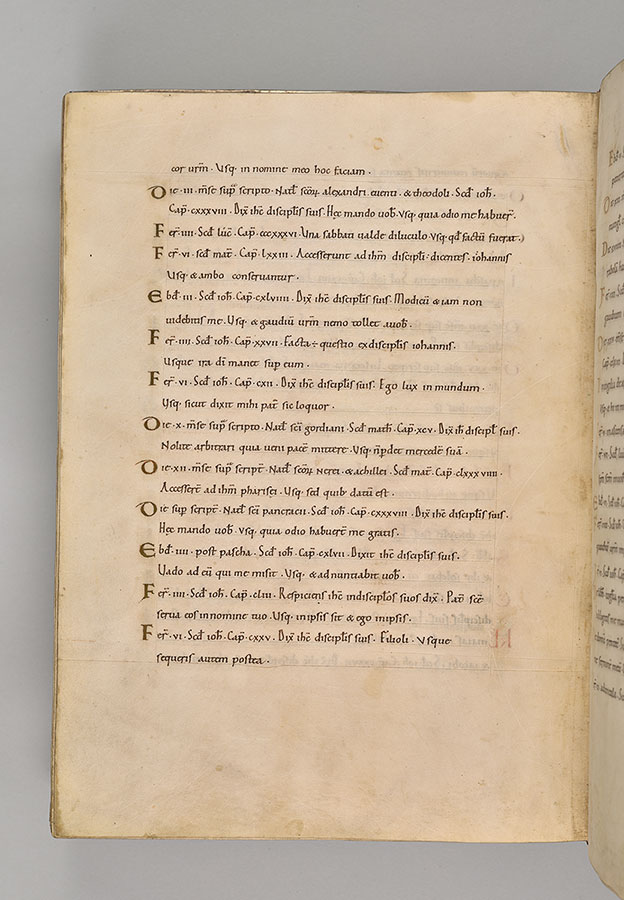 cor urm̄. Usq· in nomine meo hoc faciam.
Die·III·m̄se sup̄ scripto·Natl̄ scōꝝ alexandri euenti·&theodoli·Scd̄ ioh̄.
Cap̄·CXXXVIII·Dix̄ ihc̄ discipl̄is suis. Hęc mando uob̄·Usq· quia odio me habuer̄.
Fer̄·IIII·Scd̄ Luc̄·Cap̄·CCCXXXVI·Una sabbati ualde diluculo·Usq· qd̄ factū fuerat.
Fer̄·VI·scd̄ mat̄·Cap̄·LXXIII·Accesserunt ad ihm̄ discipl̄i·dicentes·iohannis
Usq· & ambo conseruantur.
Ebd̄·III·Scd̄ ioh̄·Cap̄·CXLVIIII·Dix̄ ihc̄ discipl̄is suis. Modicū & iam non
uidebitis me. Usq· & gaudiū urm̄ nemo tollet auob̄.
Fer̄·IIII·Scd̄ ioh̄·Cap̄·XXVII·Facta ÷ questio exdiscipl̄is iohannis.
Usque ira dī manet sup eum.
Fer̄·VI·Scd̄ ioh̄·Cap̄·CXII·Dix̄ ihc̄ discipl̄is suis. Ego lux in mundum.
Usq· sicut dixit mihi pat̄ sic loquor.
Die·X·m̄se sup̄ scripto·Natl̄ scī gordiani·Scd̄ math̄·Cap̄·XCV·Dix̄ ih̄ discipl̄ suis.
Nolite arbitrari quia ueni pacē mittere. Usq· n̄pdet mercedē suā.
Die·XII·m̄se sup̄ script̄·Natl̄ scōꝝ nerei·&achillei·Scd̄ mat̄·Cap̄·CLXXXVIIII·
Accesser̄ ad ihm̄ pharisei·Usq· sed quib· datū est.
Die sup̄ script̄·Natl̄ scī pancracii·Scd̄ ioh̄·Cap̄·CXXXVIII·Dix̄ ihc̄ discipl̄is suis.
Hęc mando uob̄·Usq· quia odio habuer̄ me gratis.
Ebd̄·IIII·post pascha·Scd̄ ioh̄·Cap̄·CXLVII·Dixit ihc̄ discipl̄is suis.
Uado ad eū qui me misit·Usq· & adnuntiabit uob̄.
Fer̄·IIII·Scd̄ ioh̄·Cap̄·CLIII·Respiciens ihc̄ indiscipl̄os suos dix̄·Pat̄ scē
serua eos in nomine tuo·Usq· inipsis sit & ego inipsis.
Fer̄·VI·Scd̄ ioh̄·Cap̄·CXXV·Dix̄ ihc̄ discipl̄is suis. Filioli·Usque
sequeris autem postea.